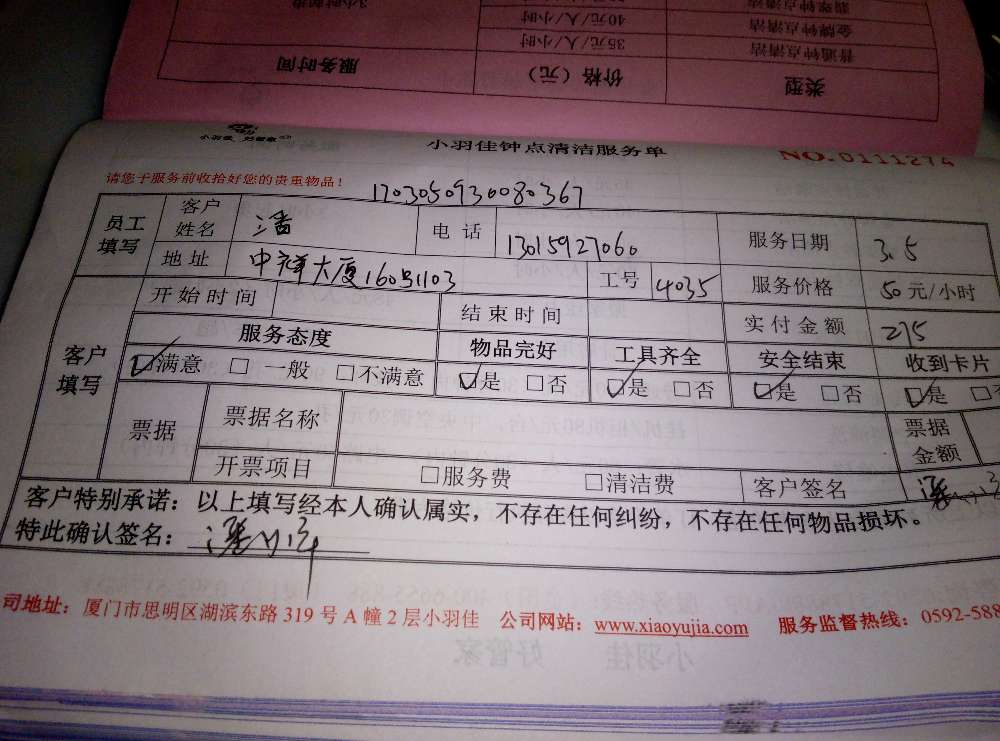 3小时起步
翡翠钟点清洁
40元/人/小时
金牌钟点清洁
35元/人/小时
普通钟点清洁
服务时间
价格（元）
类型
小羽佳 好管家
小羽佳钟点清洁服务单
NO.0111274
请您于服务前收拾好您的贵重物品！
1703050930080367
员工填写 客户姓名 潘 电话 13015927060 服务日期 3.5
地址 中祥大厦160号1103 工号 4035 服务价格 50元/小时
客户填写 开始时间 结束时间 实付金额 275
服务态度 物品完好 工具齐全 安全结束 收到卡片
☑满意 □一般 □不满意 ☑是 □否 ☑是 □否 ☑是 □否 ☑是
票据 票据名称 票据金额
开票项目 □服务费 □清洁费 客户签名 潘
客户特别承诺：以上填写经本人确认属实，不存在任何纠纷，不存在任何物品损坏。
特此确认签名：潘
司地址：厦门市思明区湖滨东路 319 号 A 幢 2 层小羽佳 公司网站：www.xiaoyujia.com 服务监督热线：0592-588
小羽佳 好管家